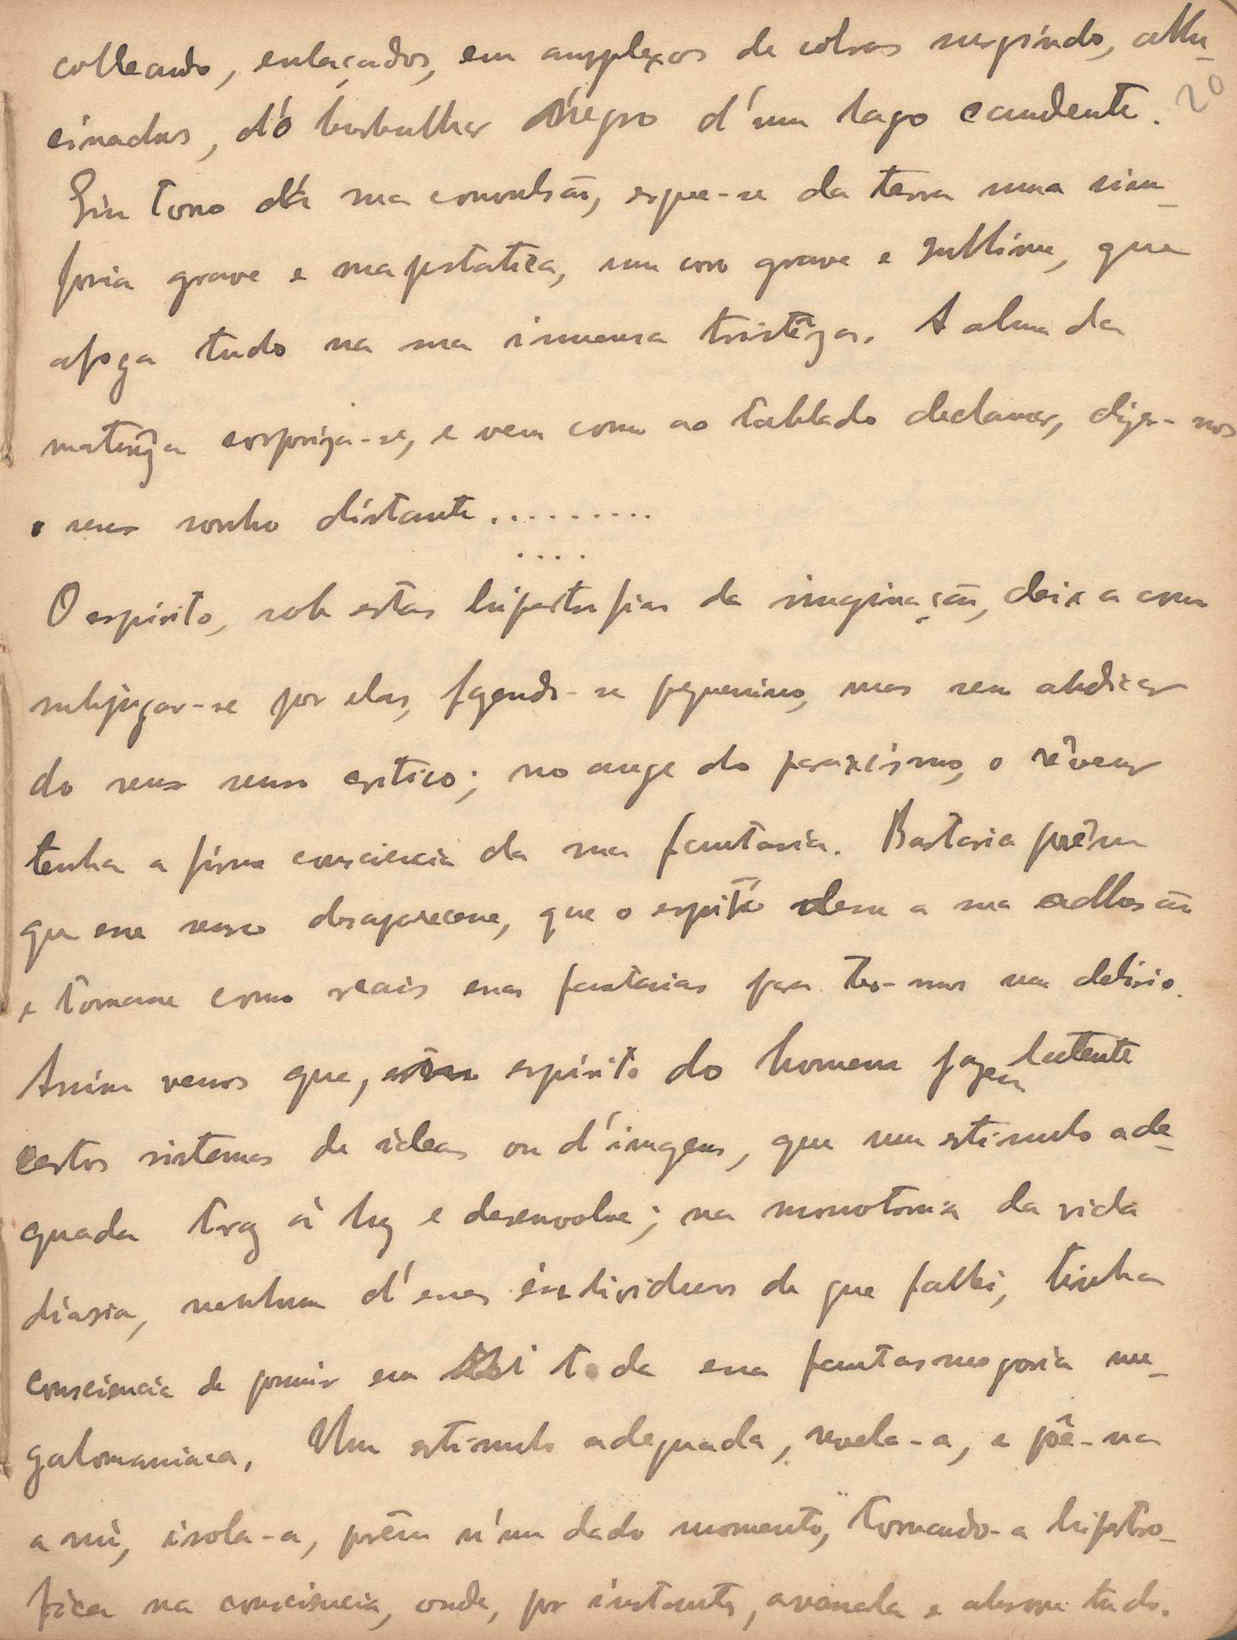 colleando, enlaçados, em amplexos de cobras surgindo, allu-
20
cinadas, d'o borbulhar negro d'um lago candente.
Em torno d'a sua convulsão, ergue-se da terra uma sim-
fonia grave e magestatica, um coro grave e sublime, que
afoga tudo na sua immensa tristêza. A alma da
natureza corporiza-se, e vem como ao tablado declamar, dizer-nos
o seu sonho distante.........
....
O espirito, sob estas hipertrofias da imaginação, deixa como
subjugar-se por elas, fazendo-se pequenino, mas sem abdicar
do seu senso critico; no auge do paraxismo, o rêveur
tenha a firme consciencia da sua fantasia. Bastaria porêm
que esse senso desaparecesse, que o espirito desse a sua adhesão
e tomasse como reais essas fantasias para ter-mos um delirio.
Assim vemos que, espirito do homem jazem latente
certos sistemas de ideas ou d'imagens, que um estimulo ade-
quada traz á luz e desenvolve; na monotonia da vida
diaria, nenhum d'esses individuos de que fallei, tinha
consciencia de possuir em si toda essa fantasmagoria me-
galomaniaca. Um estimulo adequada, revela-a, e põe-na
a nú, isola-a, porêm n'um dado momento, tornando-a hipertro-
fica na consciencia, onde, por instantes, avassala e absorve tudo.